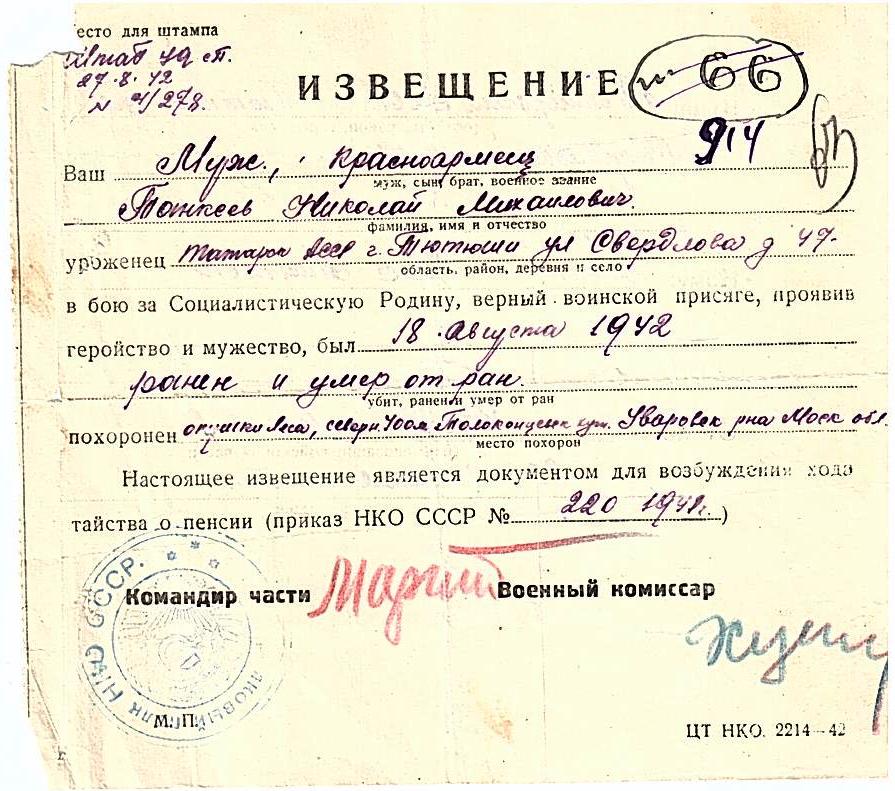 есто для штампа
Штаб 49 сп.
27.8.42
N 4/278.
ИЗВЕЩЕНИЕ
66
914
Ваш Муж, красноармеец
муж, сын, брат, военное звание
Тонкеев Николай Михаилович.
фамилия, имя и отчество
уроженец Татарск АССР г. Тютюши ул Свердлова д 47.
область, район, деревня и село
в бою за Социалистическую Родину, верный воинской присяге, проявив
геройство и мужество, был 18 августа 1942
ранен и умер от ран.
убит, ранен и умер от ран
похоронен опушки леса, 400м Уваровск р-на Моск обл.
место похорон
Настоящее извещение является документом для возбуждения хода
тайства о пенсии (приказ НКО СССР № 220 1941г.)
Командир части Военный комиссар
НКО СССР.
М.П.
ЦТ НКО. 2214—42